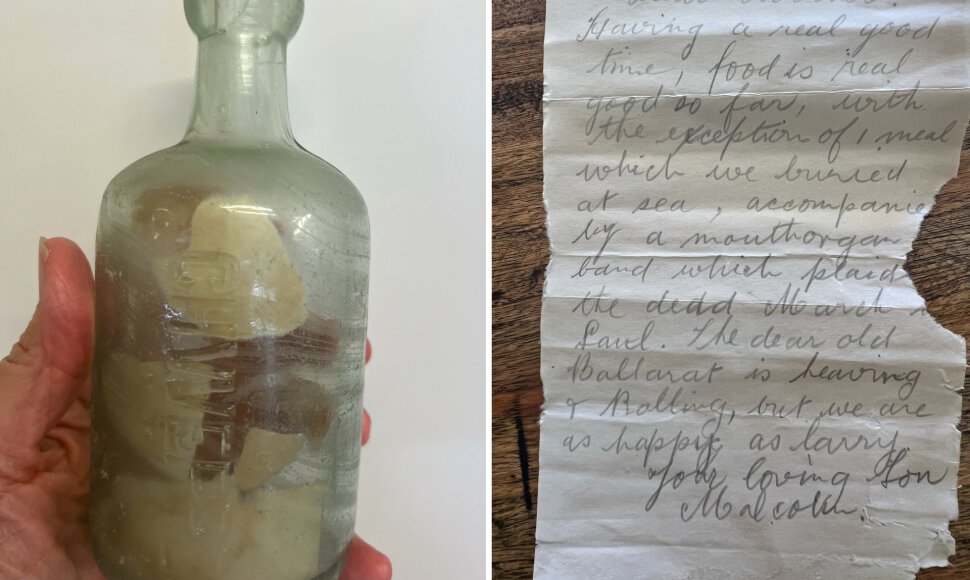 Having a real good
time, food is real
good so far, with
the exception of 1 meal
which we buried
at sea, accompanie
by a mouthorgan
band which plaid
the dead March
Saul. The dear old
Ballarat is heaving
& Rolling, but we are
as happy as larry
Your loving Son
Malcolm.